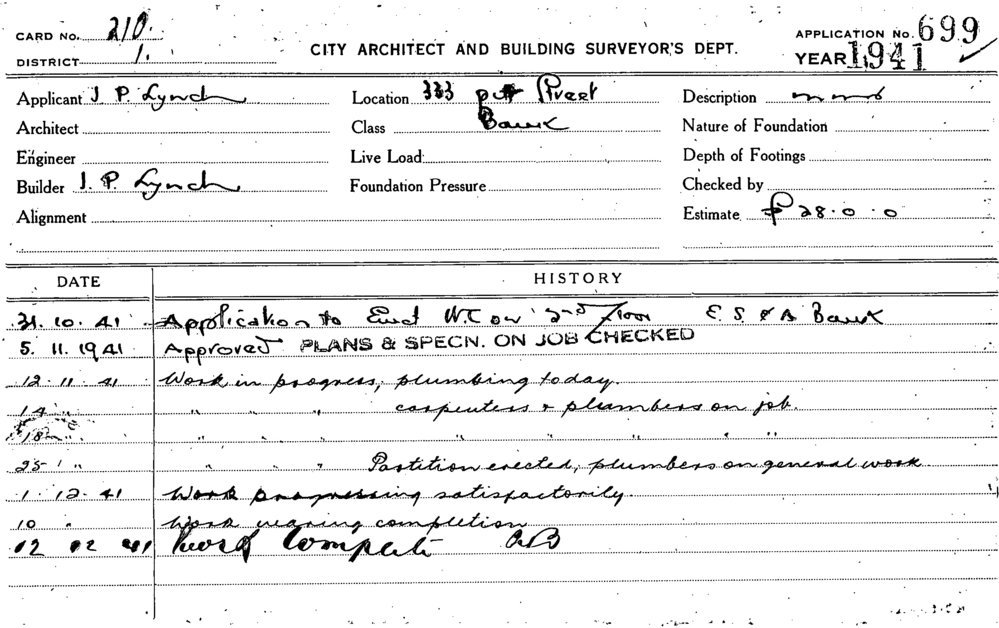 CARD No. 210.
DISTRICT 1.
CITY ARCHITECT AND BUILDING SURVEYOR'S DEPT.
APPLICATION No. 699
YEAR 1941
Applicant J. P. Lynch
Location 333 Pitt Street
Description
Architect
Class Bank
Nature of Foundation
Engineer
Live Load
Depth of Footings
Builder J. P. Lynch
Foundation Pressure
Checked by
Alignment
Estimate £ 28.0.0
DATE HISTORY
31.10.41 Application to Erect W.C on 2nd Floor E. S. & A Bank
5.11.1941 Approved PLANS & SPECN. ON JOB CHECKED
12.11.41 Work in progress, plumbing today.
14 " " " " " carpenters & plumbers on job.
18 " " " " " " " " " "
25 " " " " " Partition erected, plumbers on general work
1.12.41 Work progressing satisfactorily.
10 " Work nearing completion
12 12 41 Work Complete